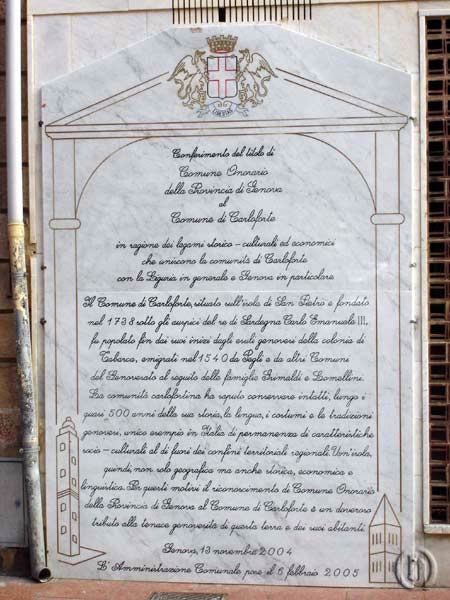 Conferimento del titolo di
Comune Onorario
della Provincia di Genova
al
Comune di Carloforte
in ragione dei legami storico - culturali ed economici
che uniscono la comunità di Carloforte
con la Liguria in generale e Genova in particolare
Il Comune di Carloforte, situato sull'isola di San Pietro e fondato
nel 1738 sotto gli auspici del re di Sardegna Carlo Emanuele III,
fu popolato fin dai suoi inizi dagli esuli genovesi della colonia di
Tabarca, emigrati nel 1540 da Pegli e da altri Comuni
del Genovesato al seguito della famiglia Grimaldi e Lomellini.
La comunità carlofortina ha saputo conservare intatti, lungo i
quasi 500 anni della sua storia, la lingua, i costumi e le tradizioni
genovesi, unico esempio in Italia di permanenza di caratteristiche
socio - culturali al di fuori dei confini territoriali regionali. Un'isola,
quindi, non solo geografica ma anche storica, economica e
linguistica. Per questi motivi il riconoscimento di Comune Onorario
della Provincia di Genova al Comune di Carloforte è un doveroso
tributo alla tenace genovesità di questa terra e dei suoi abitanti.
Genova, 13 novembre 2004
L'Amministrazione Comunale pose il 5 febbraio 2005